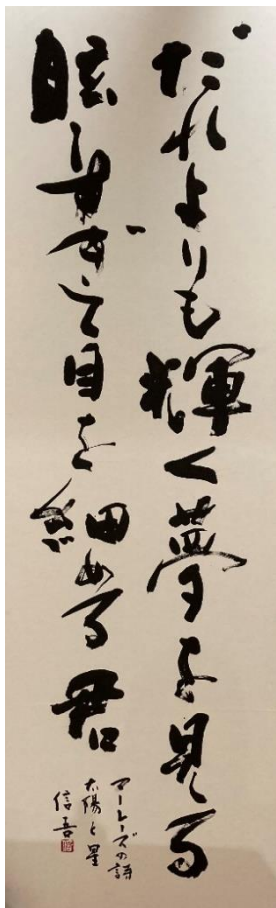 だれよりも輝く夢を見る
眩しすぎて目を細める君
アーレーズの詩
太陽と星
信吾